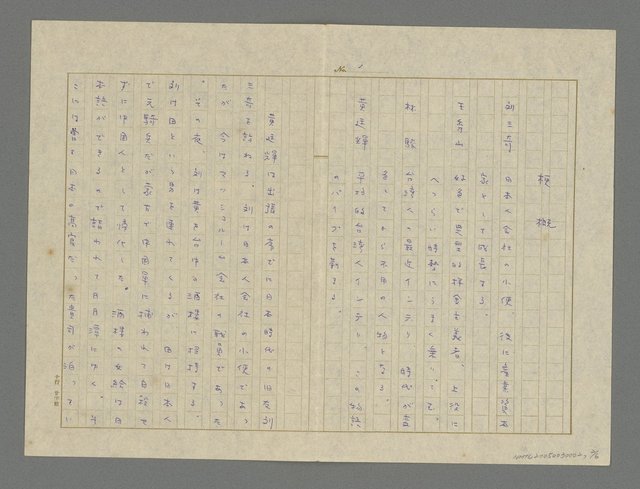 No. 1
梗概
劉三奇　日本人会社の小使、後に産業資本
家として成長する。
王秀山　好色で典型的拝金主義者、上役に
へつらい時勢にうまく乗って
林　台湾人の最近インテリ、時代が変
ってから不用の人物となる。
黄廷輝　平均的台湾人インテリ。この物語
のパイプを務める。
黄廷輝は出張の序でに日本時代の旧友劉
三奇を訪ねる。劉は日本人会社の小使であっ
たが今はマンモス会社の職員であった
。その夜、劉は黄を台中の酒楼に招待する。
劉は田という男を連れてくるが、田は日本人
で元騎兵だが京方で中国軍に捕われて自殺せ
ずに中国人として帰化した。酒楼の女給は日
本語ができるので誘われて日月潭に行く。そ
こには曽て日本の高官だった貴司が泊ってい
NMTL20050030002, 2/6